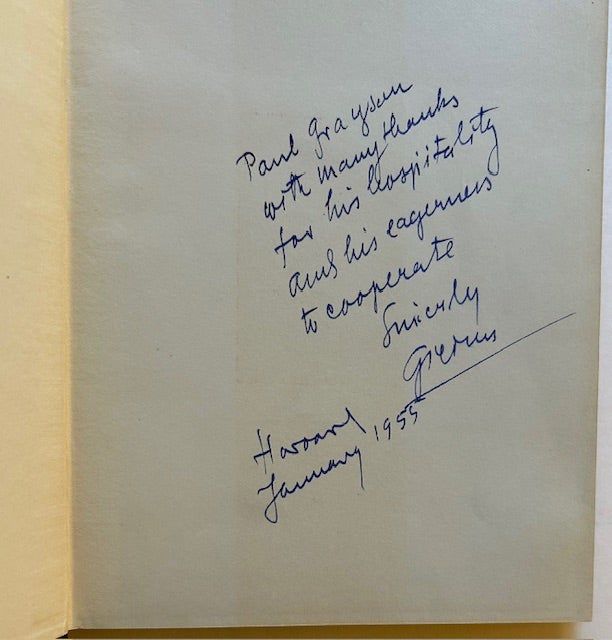 Paul Grayson
with many thanks
for his hospitality
and his eagerness
to cooperate
Sincerly
Harvard
January 1955